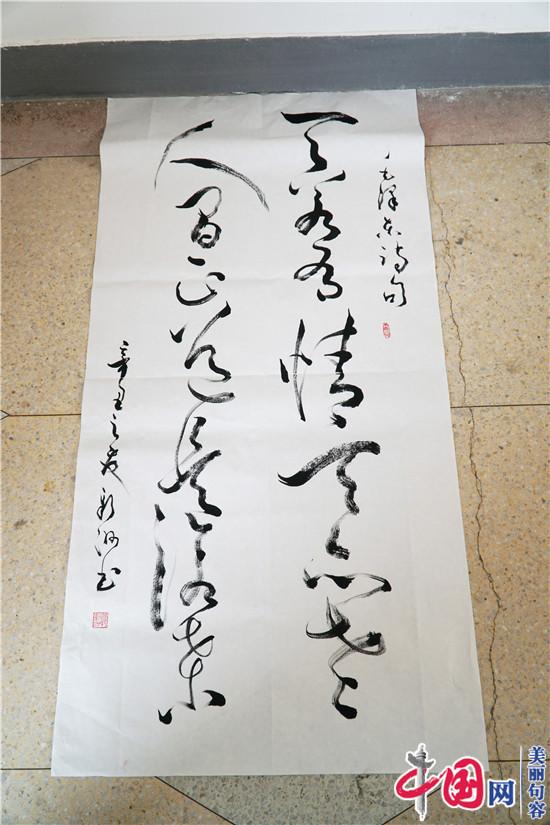 毛泽东诗句
天若有情天亦老
人间正道是沧桑
辛丑之夏 书
中国网
美丽句容